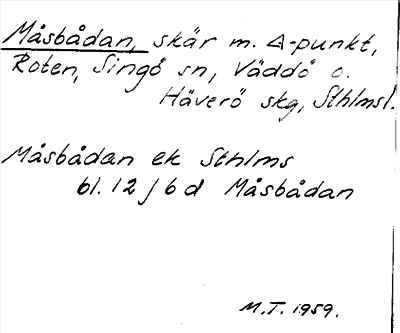 Måsbådan, skär m. Δ-punkt,
Roten, Singö sn, Väddö o.
Häverö skg, Sthlmsl.
Måsbådan ek Sthlms
bl. 12 j 6 d Måsbådan
M.T. 1959.